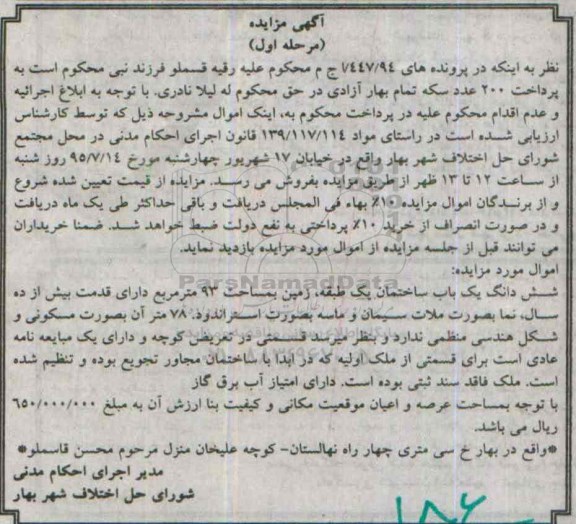 آگهی مزایده
(مرحله اول)
نظر به اینکه در پرونده های ۱/۴۴۷/۹۴ ج م محکوم علیه رقیه قسملو فرزند نبی محکوم است به
پرداخت ۲۰۰ عدد سکه تمام بهار آزادی در حق محکوم له لیلا نادری. با توجه به ابلاغ اجرائیه
و عدم اقدام محکوم علیه در پرداخت محکوم به، اینک اموال مشروحه ذیل که توسط کارشناس
ارزیابی شده است در راستای مواد ۱۳۹/۱۱۷/۱۱۴ قانون اجرای احکام مدنی در محل مجتمع
شورای حل اختلاف شهر بهار واقع در خیابان ۱۷ شهریور چهارشنبه مورخ ۹۵/۷/۱۴ روز شنبه
از ساعت ۱۲ تا ۱۳ ظهر از طریق مزایده بفروش می رسد. مزایده از قیمت تعیین شده شروع
و از برندگان اموال مزایده ۱۰٪ بهاء فی المجلس دریافت و باقی حداکثر طی یک ماه دریافت
و در صورت انصراف از خرید ۱۰٪ پرداختی به نفع دولت ضبط خواهد شد. ضمنا خریداران
می توانند قبل از جلسه مزایده از اموال مورد مزایده بازدید نماید.
اموال مورد مزایده:
شش دانگ یک باب ساختمان یک طبقه، زمین بمساحت ۹۳ مترمربع دارای قدمت بیش از ده
سال، نما بصورت ملات سیمان و ماسه بصورت استراندود. ۷۸ متر آن بصورت مسکونی و
شکل هندسی منظمی ندارد و بنظر میرسد قسمتی در تعریض کوچه و دارای یک مبایعه نامه
عادی است برای قسمتی از ملک اولیه که در ابدا با ساختمان مجاور تجویع بوده و تنظیم شده
است. ملک فاقد سند ثبتی بوده است. دارای امتیاز آب برق گاز
با توجه بمساحت عرصه و اعیان موقعیت مکانی و کیفیت بنا ارزش آن به مبلغ ۶۵۰/۰۰۰/۰۰۰
ریال می باشد.
*واقع در بهار خ سی متری چهار راه نهالستان- کوچه علیخان منزل مرحوم محسن قاسملو*
مدیر اجرای احکام مدنی
شورای حل اختلاف شهر بهار
ParsNamadData
۱۸۶